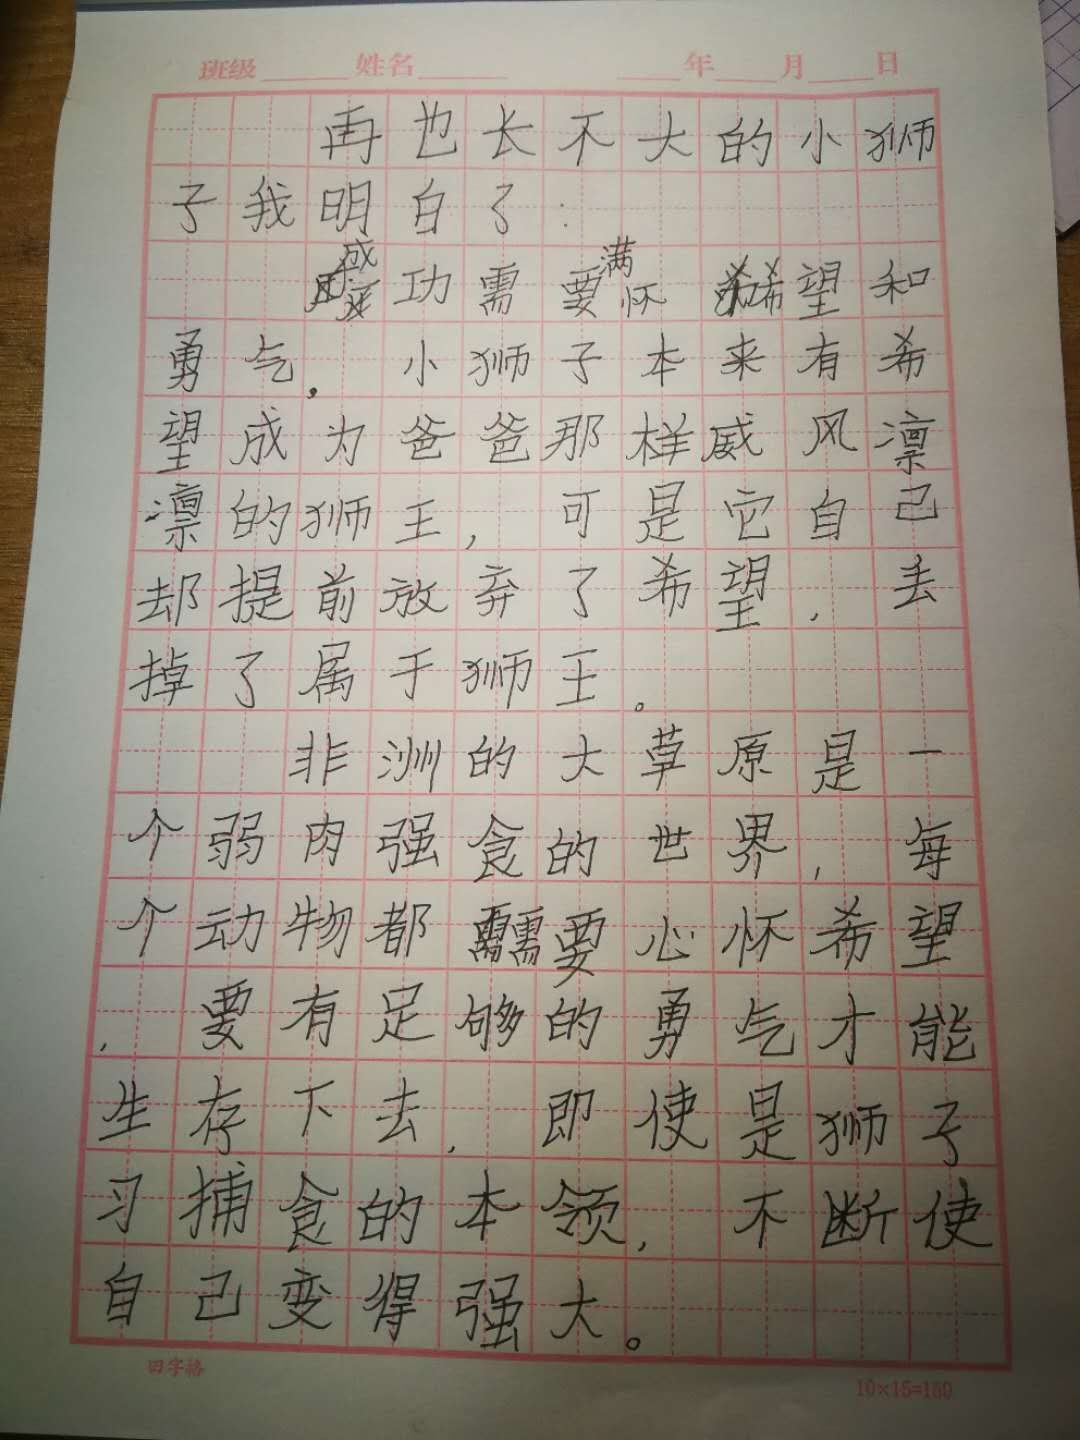 班级 姓名 年 月 日
再也长不大的小狮
子我明白了.
成功需要满怀希望和
勇气。小狮子本来有希
望成为爸爸那样威风凛
凛的狮王,可是它自己
却提前放弃了希望,丢
掉了属于狮王。
非洲的大草原是一
个弱肉强食的世界,每
个动物都需要心怀希望
,要有足够的勇气才能
生存下去,即使是狮子
习捕食的本领,不断使
自己变得强大。
田字格 10×15=150